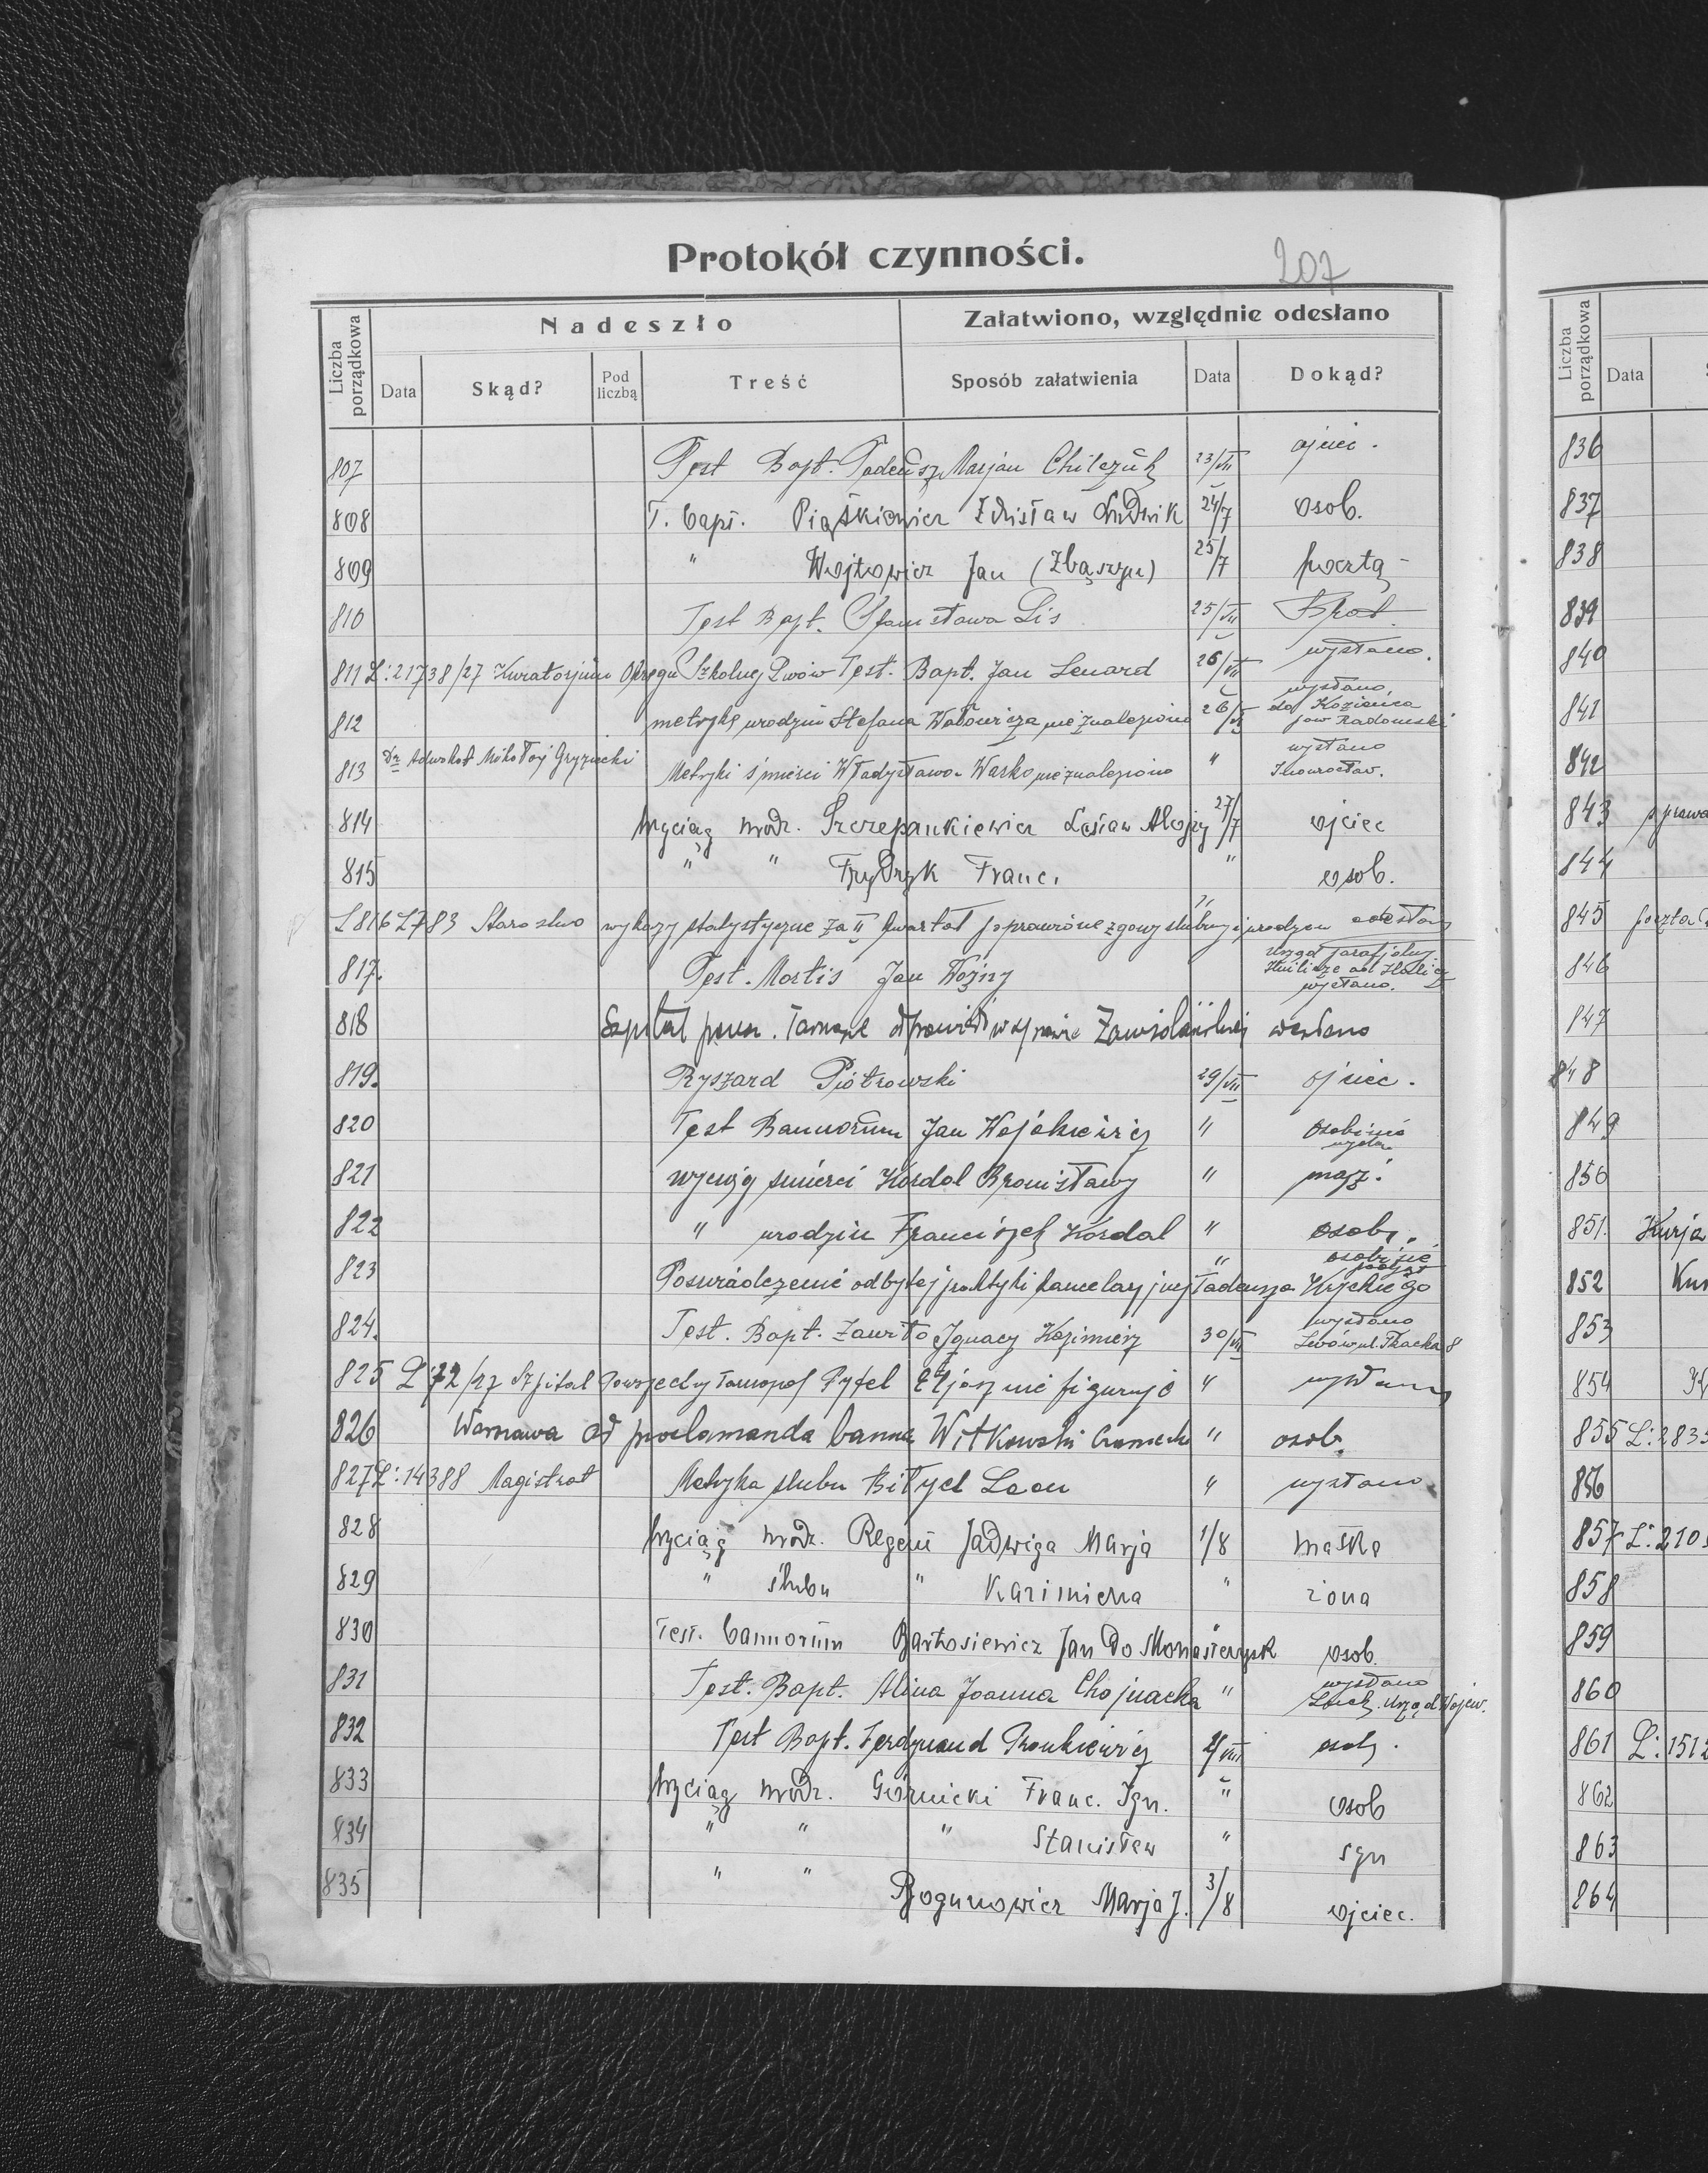 Protokół czynności.
207
Liczba porządkowa
Nadeszło
Załatwiono, względnie odesłano
Data
Skąd?
Pod liczbą
Treść
Sposób załatwienia
Data
Dokąd?
807 Test Bapt. Tadeusz Marjan Chilczuk 23/VII ojciec.
808 T. bapt. Piątkiewicz Zdzisław Ludwik 24/7 osob.
809 " Wojtowicz Jan (Zbąszyn) 25/7 pocztą
810 Test Bapt. Stanisława Lis 25/VII
811 L: 21738/27 Kuratorjum Okręgu Szkolnej Lwów Test. Bapt. Jan Lenard 26/VII wysłano.
812 metrykę urodzin Stefana Wałowicza nie znaleziono 26/VII wysłano do Kozienica pow. Radomski
813 Dr Adwokat Mikołaj Gryziecki Metryki śmierci Władysława Waśko nie znaleziono " wysłano Inowrocław.
814 Wyciąg urodz. Szczepankiewicz Lesław Alojzy 27/7 ojciec
815 " " Frydryk Franc. " osob.
L 816 L 783 Starostwo wykazy statystyczne za II kwartał poprawione zgony śluby i urodzin odesłany
817. Test. Mortis Jan Woźny Urząd parafjalny wysłano.
818 Szpital pow. Tarnopol odpowiedź w sprawie wysłano
819. Ryszard Piotrowski 29/VII ojciec.
820 Test Bannorum Jan Wojakiewicz " osobiście
821 wyciąg śmierci Kordal Bronisławy " mąż.
822 " urodzin Franciszek Kordal " osob.
823 Poświadczenie odbytej praktyki kancelaryjnej Tadeusza Kryckiego " osobiście podjął
824. Test. Bapt. Zawiło Ignacy Kazimierz 30/VII wysłano Lwów ul. Tkacka 8
825 L: 72/27 Szpital Powszechny Tarnopol Pytel Eljasz nie figuruje " wysłany
826 Warszawa ad proclamanda banna Witkowski " osob.
827 L: 14388 Magistrat Metryka ślubu Biłyel Leon " wysłano
828 Wyciąg urodz. Regeń Jadwiga Marja 1/8 matka
829 " ślubu " Kazimiera " żona
830 Test. bannorum Bartosiewicz Jan do Monasterzysk " osob.
831 Test. Bapt. Alina Joanna Chojnacka " wysłano Łuck. Urząd Wojew.
832 Test Bapt. Ferdynand Pronkiewicz 2/VIII osob.
833 Wyciąg urodz. Górnicki Franc. Ign. " osob
834 " " " Stanisław " syn
835 " " Bogunowicz Marja J. 3/8 ojciec.
Liczba porządkowa
Data
836
837
838
839
840
841
842
843
844
845
846
847
848
849
850
851.
852
853
854
855 L: 283
856
857 L: 210
858
859
860
861 L: 1512
862
863
864